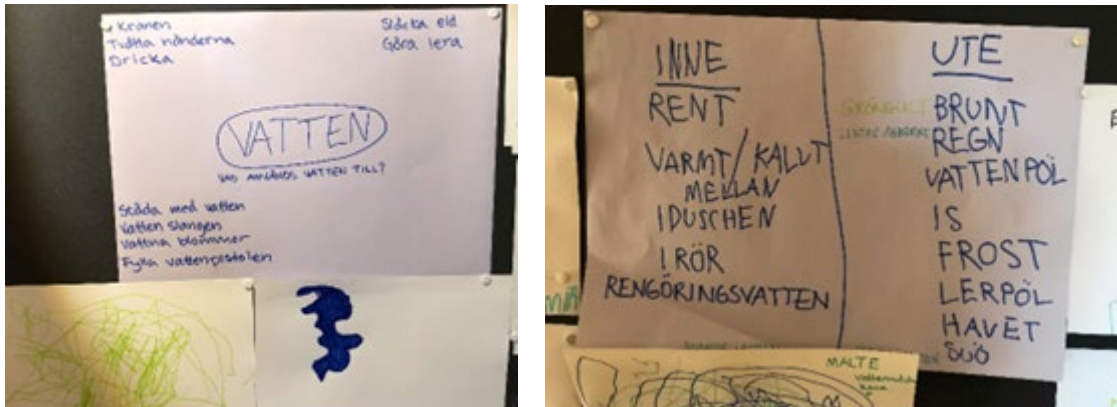 Kranen
Tvätta händerna
Dricka
Släcka eld
Göra lera
VATTEN
VAD ANVÄNDS VATTEN TILL?
Städa med vatten
Vatten slangen
Vattna blommor
Fylla vattenpistolen
INNE
RENT
VARMT/KALLT
MELLAN
I DUSCHEN
I RÖR
RENGÖRINGSVATTEN
UTE
BRUNT
REGN
VATTENPÖL
IS
FROST
LERPÖL
HAVET
SJÖ
MALTE